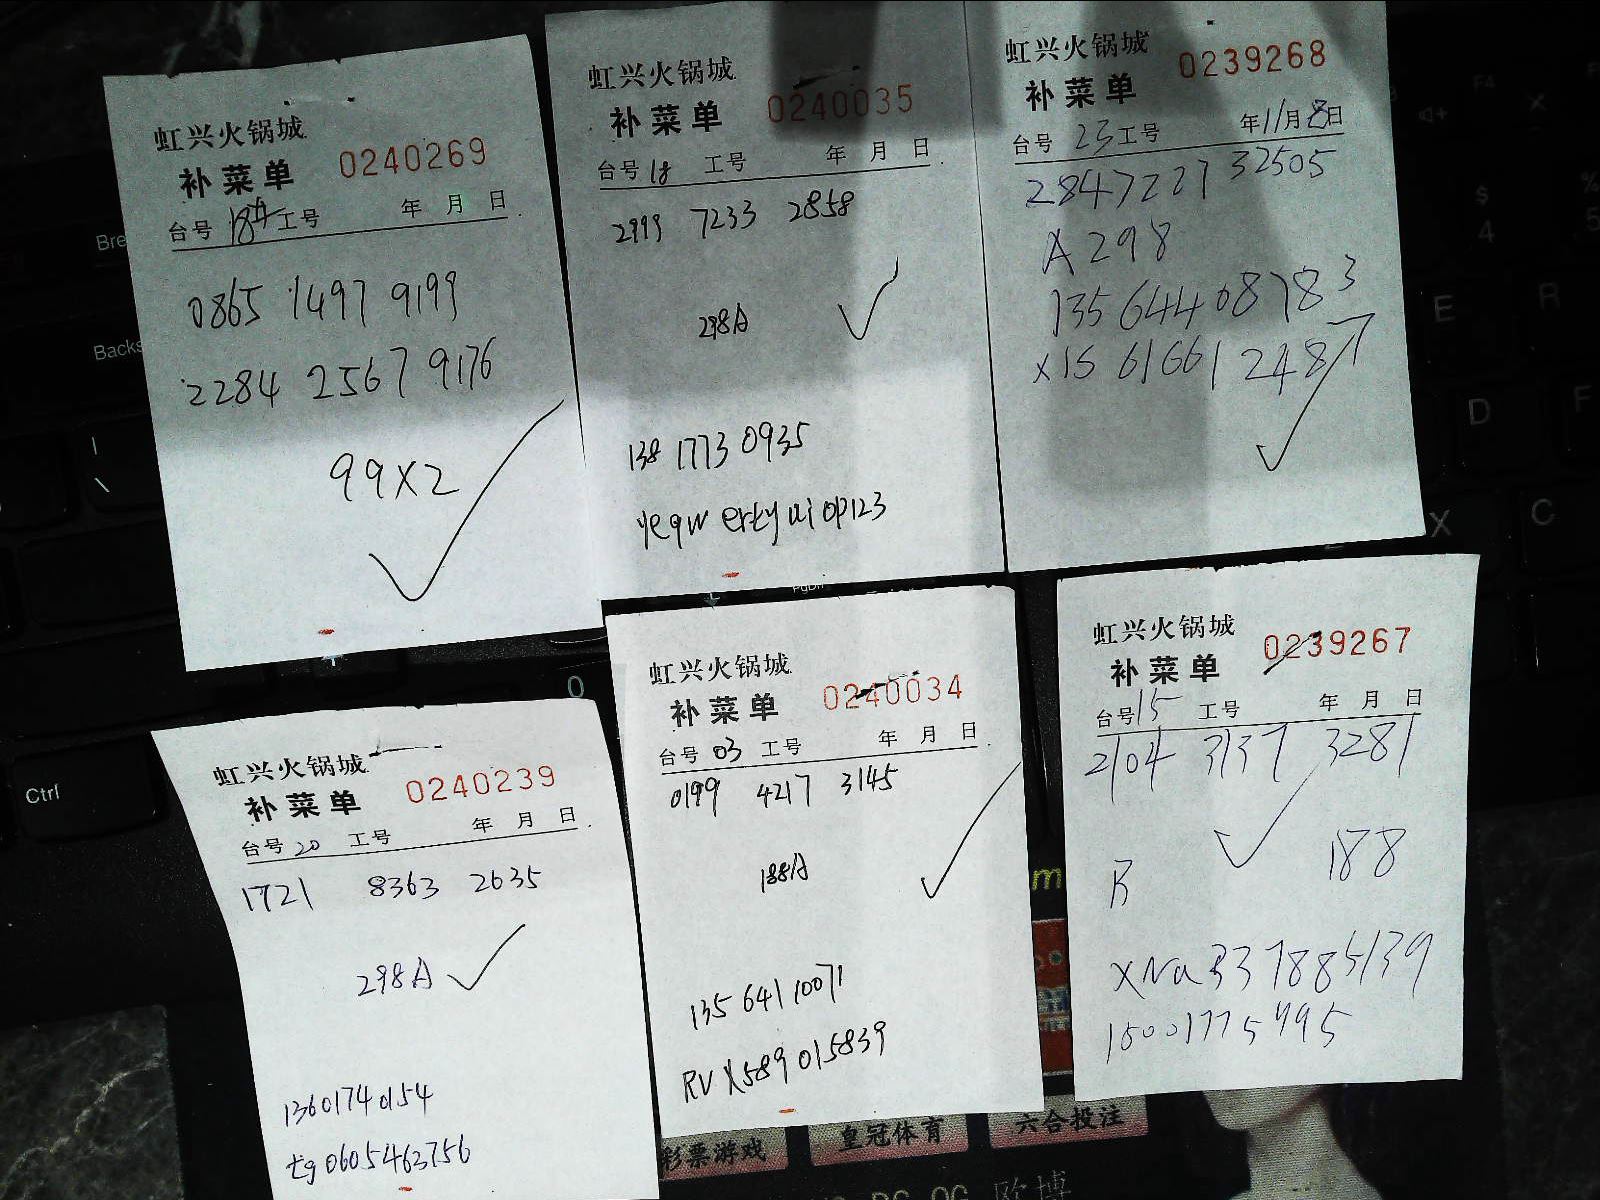 虹兴火锅城
补菜单 0240269
台号 18 工号 年 月 日
0865 1497 9199
2284 2567 9176
99X2
虹兴火锅城
补菜单 0240035
台号 18 工号 年 月 日
2999 7233 2858
298A
138 1773 0935
yeqw ertyuiop123
虹兴火锅城
补菜单 0239268
台号 23 工号 年 11 月 8 日
28472271 32505
A 298
135 644 08783
X15 61661 2487
虹兴火锅城
补菜单 0240239
台号 20 工号 年 月 日
1721 8363 2635
298A
13601740154
tg0605463756
虹兴火锅城
补菜单 0240034
台号 03 工号 年 月 日
0199 4217 3145
188A
135 6411 0071
RVX589015839
虹兴火锅城
补菜单 0239267
台号 15 工号 年 月 日
2104 3137 3281
188
XNa337885139
15001775995
Ctrl
彩票游戏
皇冠体育
六合投注
欧博